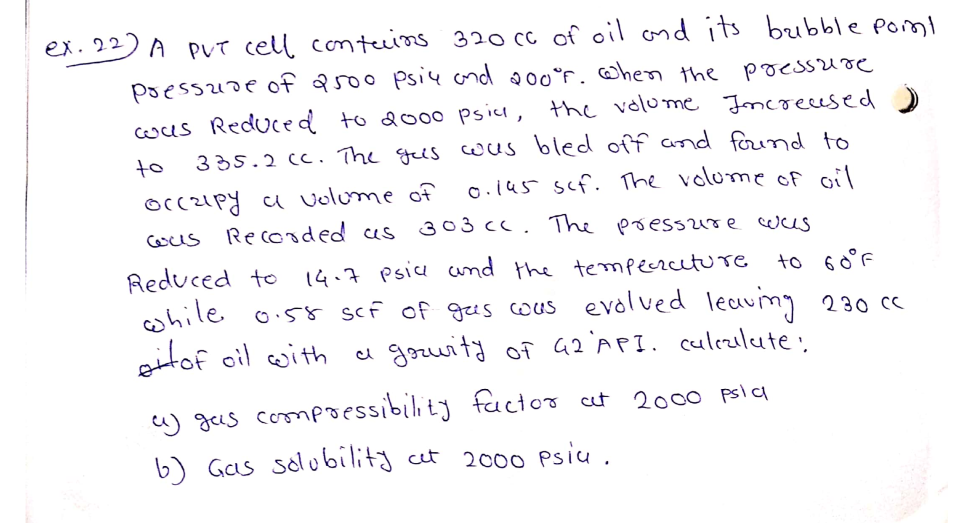 ex. 22) A PVT cell contains 320 cc of oil and its bubble point
pressure of 2500 psia and 200°F. When the pressure
was Reduced to 2000 psia, the volume Increased
to 335.2 cc. The gas was bled off and found to
occupy a volume of 0.145 scf. The volume of oil
was Recorded as 303 cc. The pressure was
Reduced to 14.7 psia and the temperature to 60°F
while 0.58 scf of gas was evolved leaving 230 cc
of oil with a gravity of 42°API. calculate:
a) gas compressibility factor at 2000 psia
b) Gas solubility at 2000 psia.